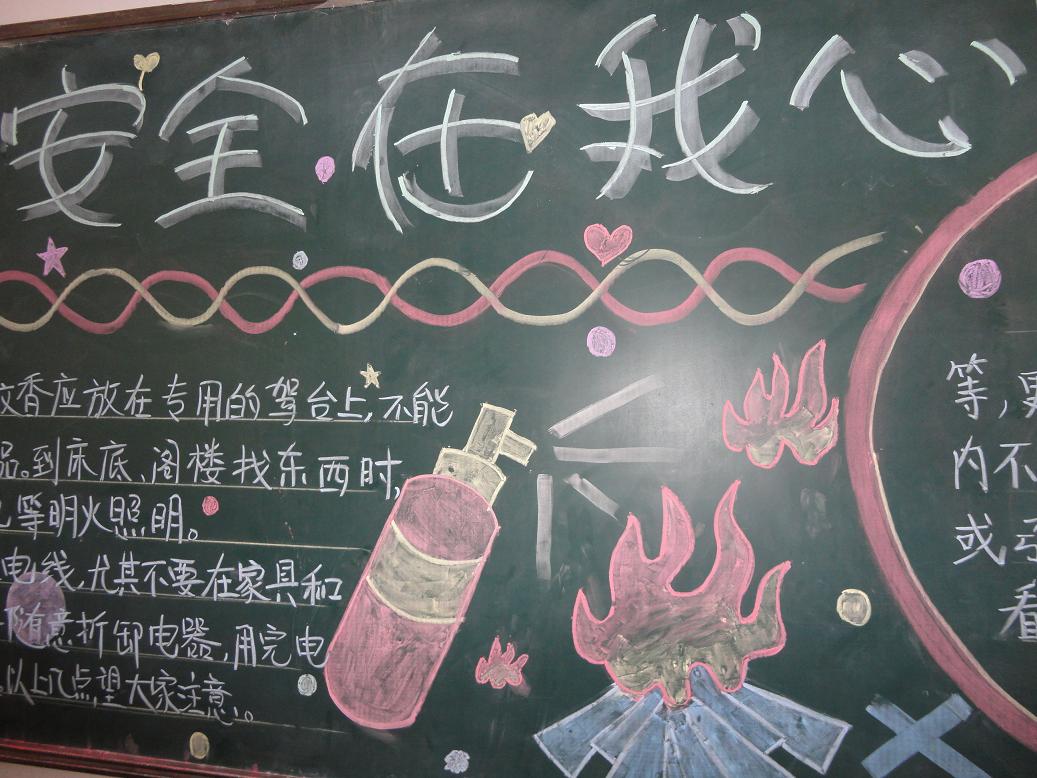 安全在我心
蚊香应放在专用的驾台上,不能
品。到床底、阁楼找东西时,
等明火照明。
电线,尤其不要在家具和
随意折卸电器,用完电
。以上几点望大家注意。
等,
内不
或
看